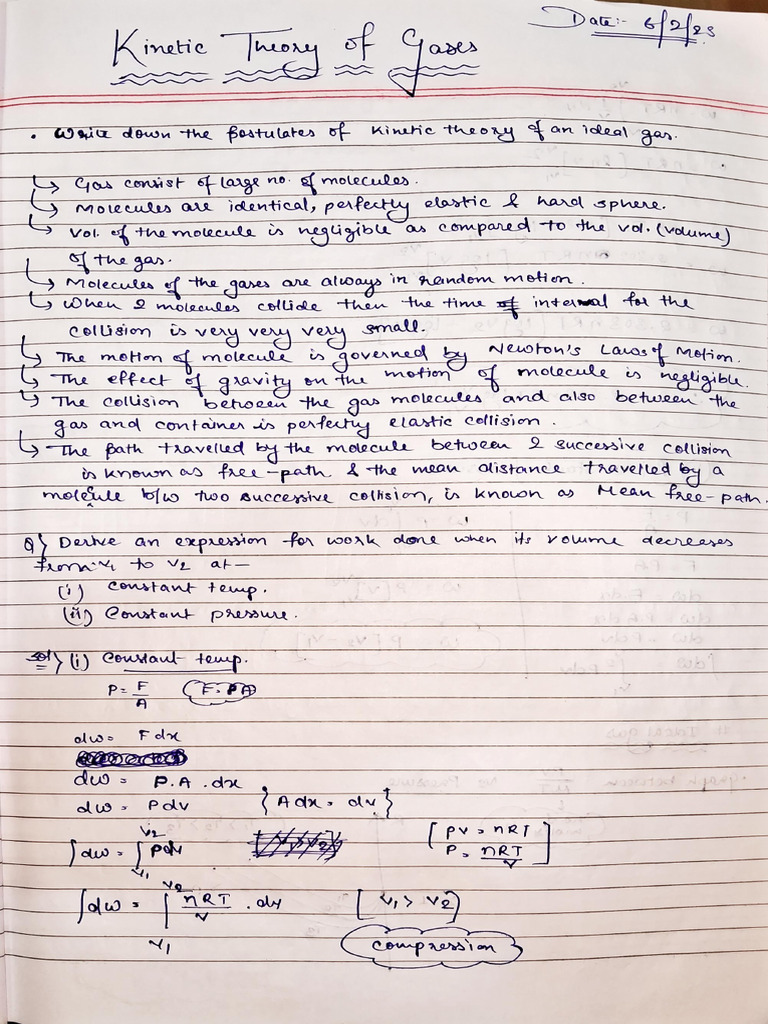 Date:- 6/2/23
Kinetic Theory of Gases
• Write down the postulates of kinetic theory of an ideal gas.
↳ Gas consist of large no. of molecules.
↳ Molecules are identical, perfectly elastic & hard sphere.
↳ Vol. of the molecule is negligible as compared to the vol. (volume)
of the gas.
↳ Molecules of the gases are always in random motion.
↳ When 2 molecules collide then the time of interval for the
collision is very very very small.
↳ The motion of molecule is governed by Newton's Laws of Motion.
↳ The effect of gravity on the motion of molecule is negligible.
↳ The collision between the gas molecules and also between the
gas and container is perfectly elastic collision.
↳ The path travelled by the molecule between 2 successive collision
is known as free-path & the mean distance travelled by a
molecule b/w two successive collision, is known as Mean free-path.
Q} Derive an expression for work done when its volume decreases
from v₁ to v₂ at—
(i) constant temp.
(ii) Constant pressure.
Sol} (i) Constant temp.
P = F/A (F = PA)
dw = F dx
dw = P.A .dx
dw = Pdv {Adx = dv}
∫dw = ∫_{v₁}^{v₂} Pdv [PV = nRT
P = nRT/V]
∫dw = ∫_{v₁}^{v₂} nRT/V .dv [v₁ > v₂]
compression